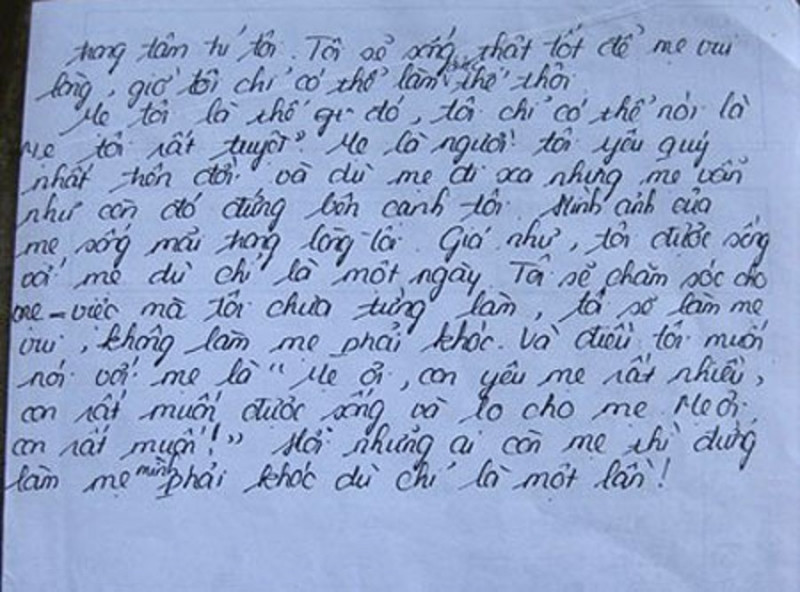 trong tâm trí tôi. Tôi sẽ sống thật tốt để mẹ vui
lòng, giờ tôi chỉ có thể làm thế thôi
Mẹ tôi là thế gì đó, tôi chỉ có thể nói là
"Mẹ tôi rất tuyệt". Mẹ là người tôi yêu quý
nhất trên đời. và dù mẹ đi xa nhưng mẹ vẫn
như còn đó đứng bên cạnh tôi. Hình ảnh của
mẹ sống mãi trong lòng tôi. Giá như, tôi được sống
với mẹ dù chỉ là một ngày. Tôi sẽ chăm sóc cho
mẹ - việc mà tôi chưa từng làm, tôi sẽ làm mẹ
vui, không làm mẹ phải khóc. Và điều tôi muốn
nói với mẹ là "Mẹ ơi, con yêu mẹ rất nhiều,
con rất muốn được sống và lo cho mẹ. Mẹ ơi.
con rất muốn!" Hỡi những ai còn mẹ thì đừng
làm mẹ mình phải khóc dù chỉ là một lần!